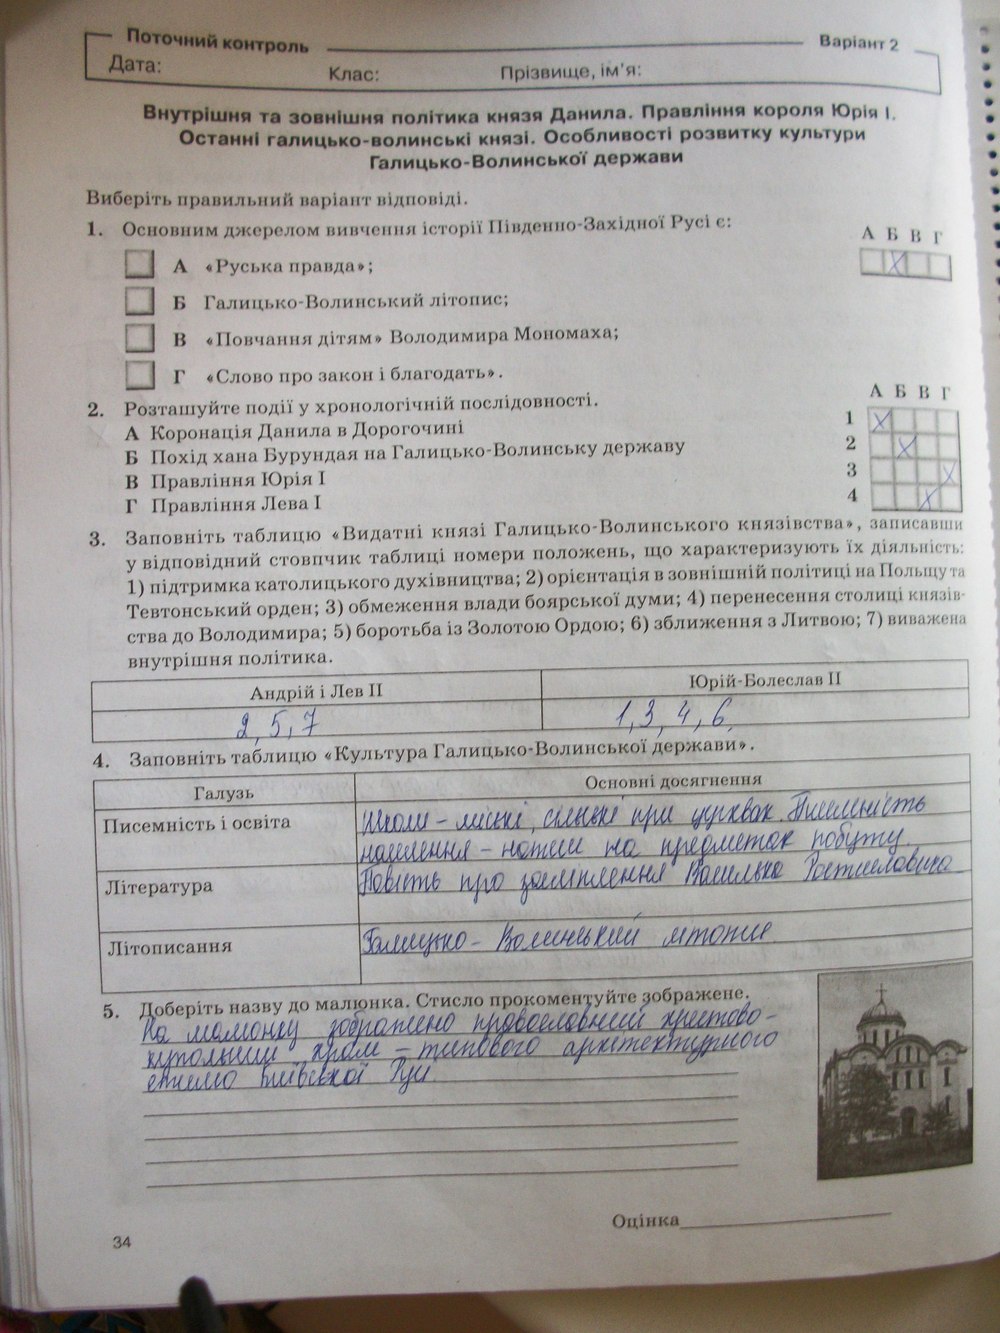 Поточний контроль
Варіант 2
Дата: Клас: Прізвище, ім'я:
Внутрішня та зовнішня політика князя Данила. Правління короля Юрія І.
Останні галицько-волинські князі. Особливості розвитку культури
Галицько-Волинської держави
Виберіть правильний варіант відповіді.
1. Основним джерелом вивчення історії Південно-Західної Русі є:
А Б В Г
А «Руська правда»;
X
Б Галицько-Волинський літопис;
В «Повчання дітям» Володимира Мономаха;
Г «Слово про закон і благодать».
2. Розташуйте події у хронологічній послідовності.
А Б В Г
А Коронація Данила в Дорогочині
1 X
Б Похід хана Бурундая на Галицько-Волинську державу
2 X
В Правління Юрія І
3 X
Г Правління Лева І
4 X
3. Заповніть таблицю «Видатні князі Галицько-Волинського князівства», записавши
у відповідний стовпчик таблиці номери положень, що характеризують їх діяльність:
1) підтримка католицького духівництва; 2) орієнтація в зовнішній політиці на Польщу та
Тевтонський орден; 3) обмеження влади боярської думи; 4) перенесення столиці князів-
ства до Володимира; 5) боротьба із Золотою Ордою; 6) зближення з Литвою; 7) виважена
внутрішня політика.
Андрій і Лев ІІ Юрій-Болеслав ІІ
2, 5, 7 1, 3, 4, 6,
4. Заповніть таблицю «Культура Галицько-Волинської держави».
Галузь Основні досягнення
Писемність і освіта Школи – міські, сільські при церквах. Писемність
населення – написи на предметах побуту.
Література Повість про засліплення Василька Ростиславича
Літописання Галицько – Волинський літопис
5. Доберіть назву до малюнка. Стисло прокоментуйте зображене.
На малюнку зображено православний хрестово-
купольний храм – типового архітектурного
стилю Київської Русі.
Оцінка
34